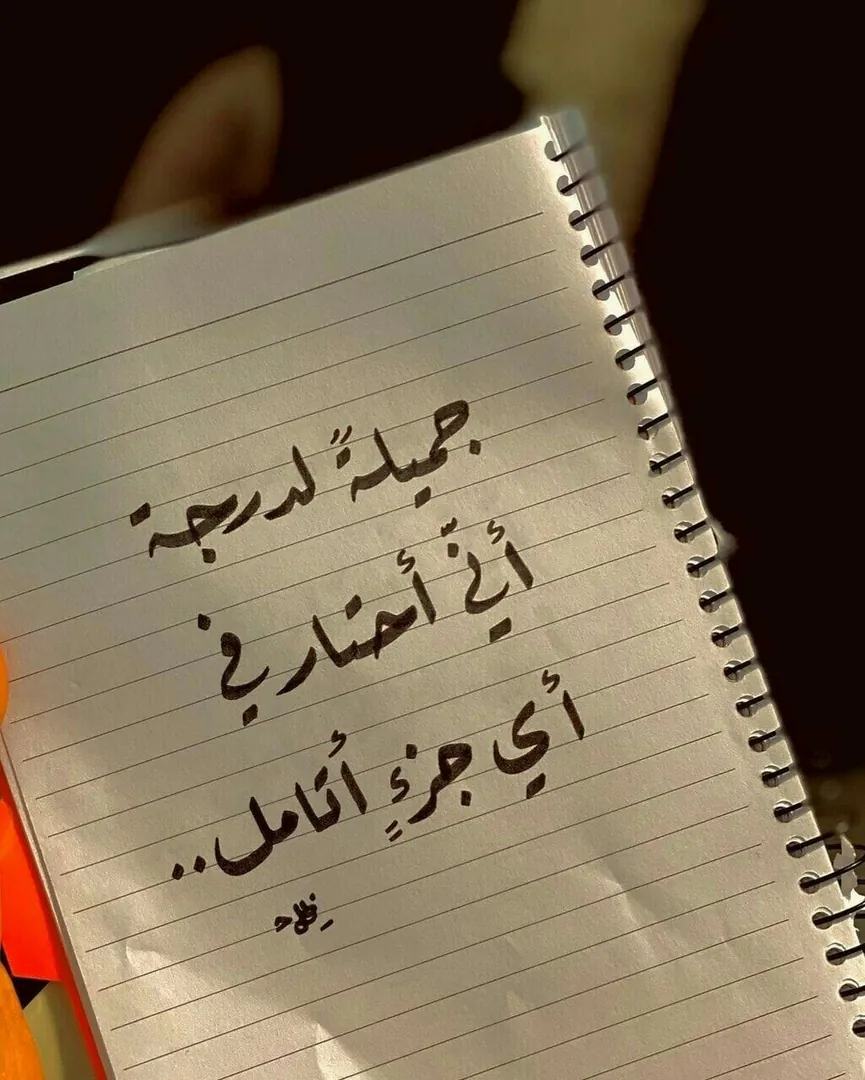 جميلةً لدرجة
أنّي أحتار في
أي جزءٍ أتامل..